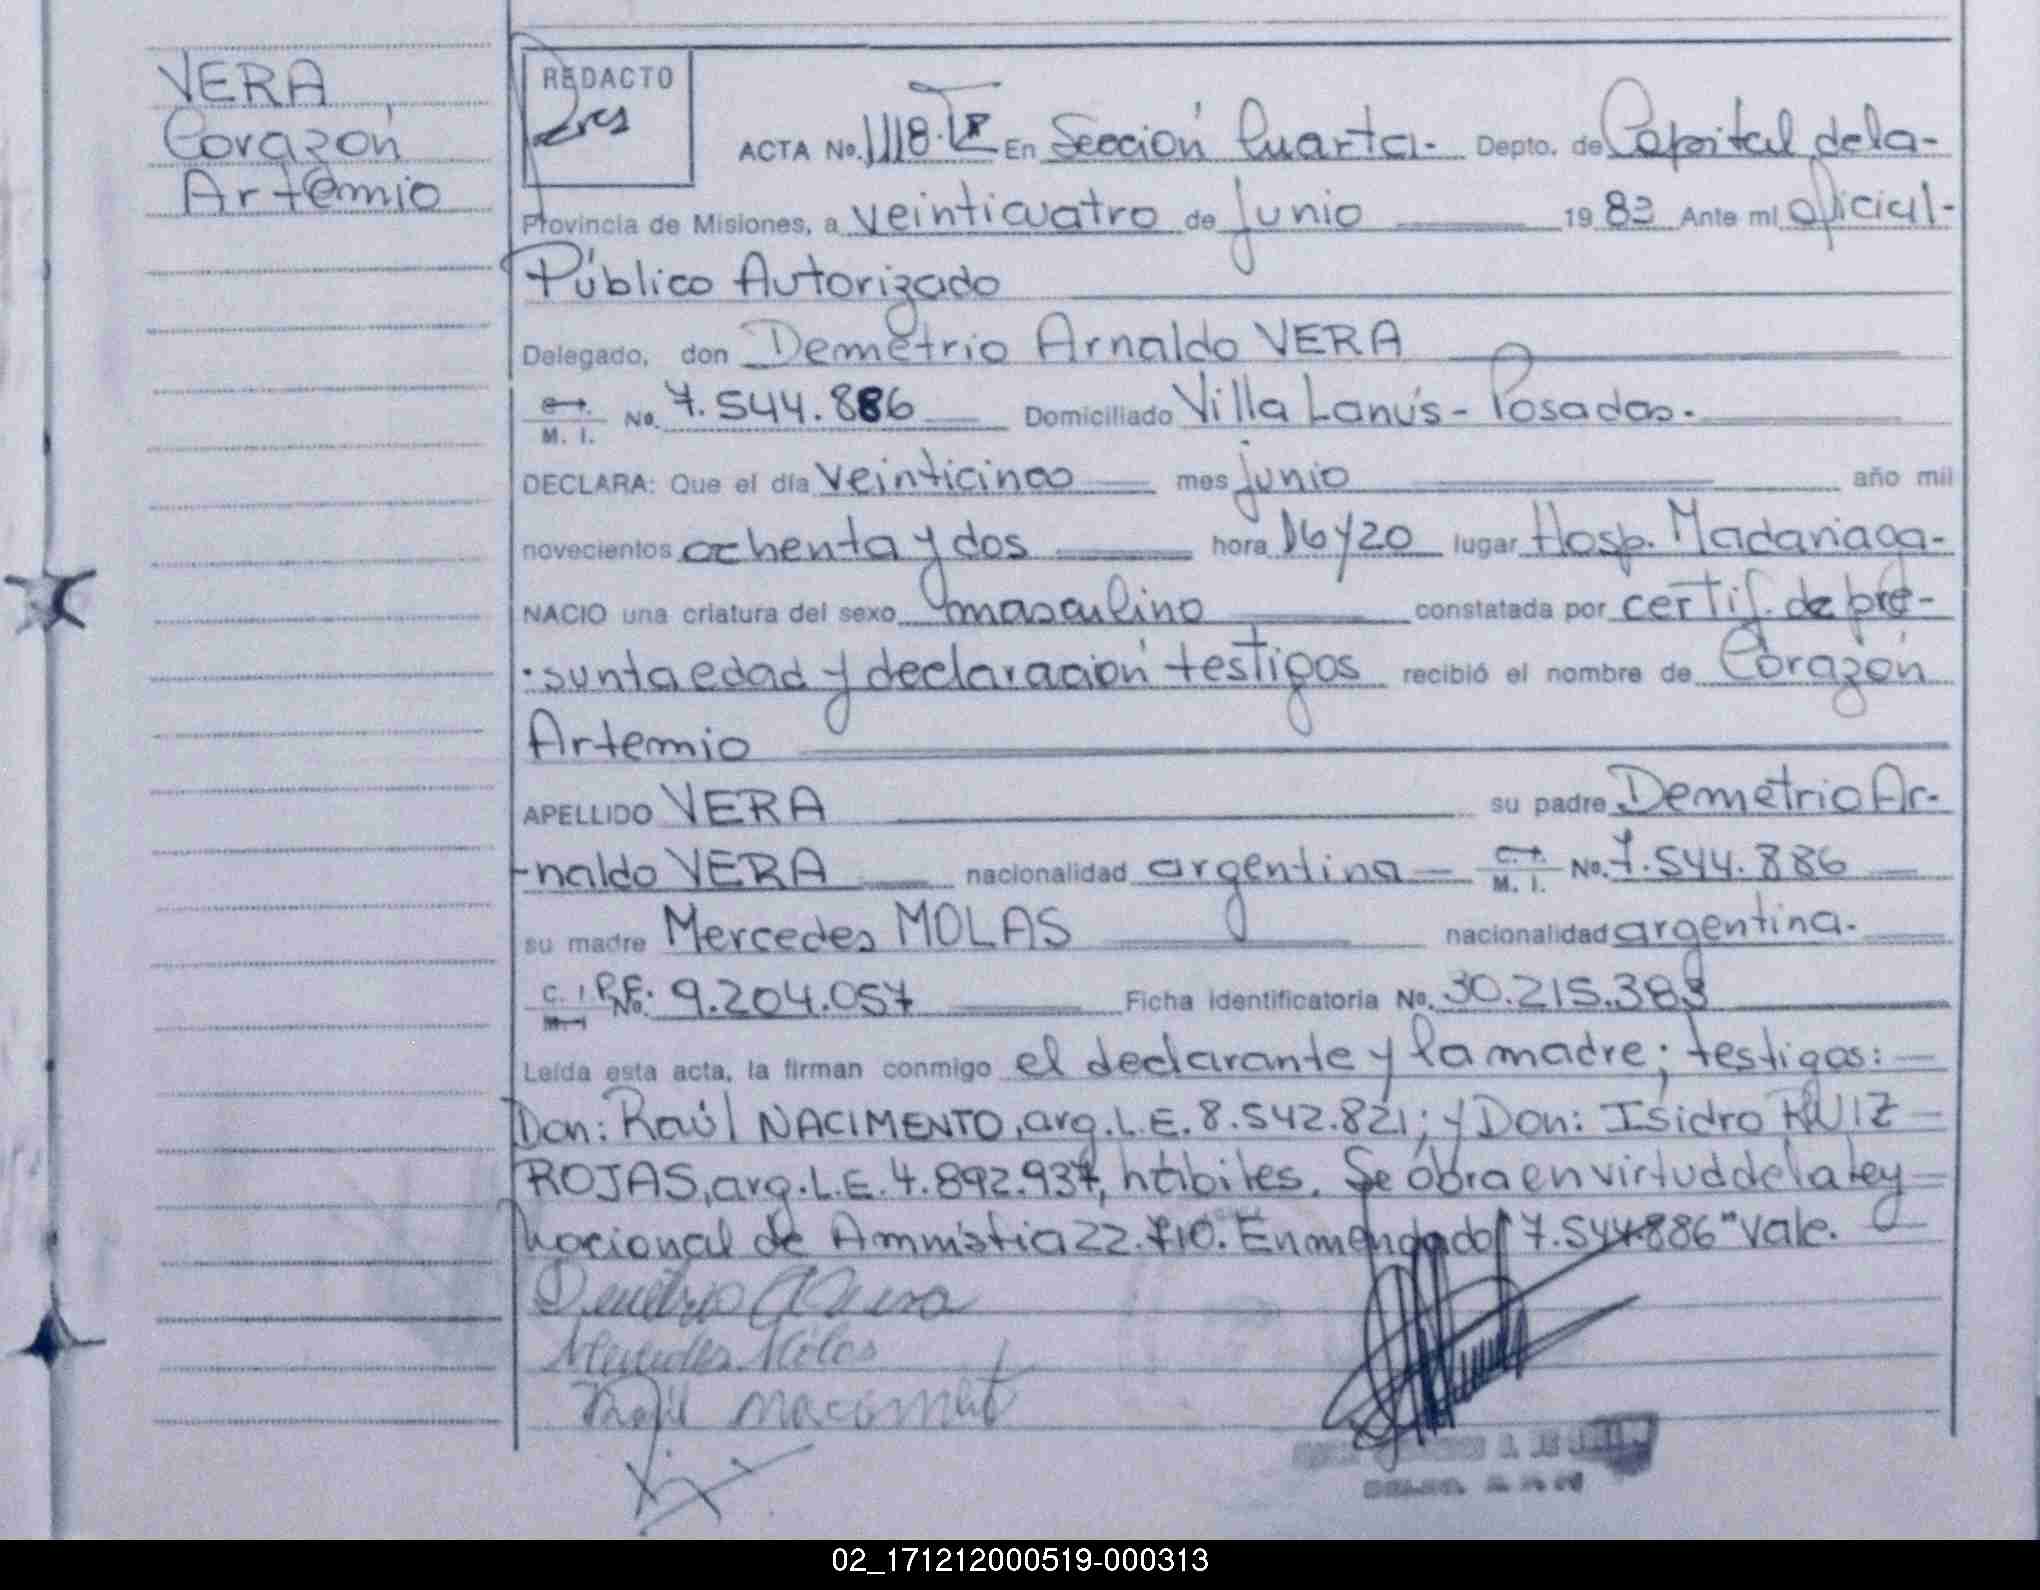 VERA
Corazón
Artemio
REDACTO
ACTA No. 1118. En Sección Cuarta.- Depto. de Capital de la-
Provincia de Misiones, a veinticuatro de junio 1983 Ante mí oficial-
Público Autorizado
Delegado, don Demetrio Arnaldo VERA
M. I. No. 7.544.886 Domiciliado Villa Lanús - Posadas.
DECLARA: Que el día veinticinco mes junio año mil
novecientos ochenta y dos hora 16 y 20 lugar Hosp. Madariaga-
NACIO una criatura del sexo masculino constatada por certif. de pre-
-sunta edad y declaración testigos recibió el nombre de Corazón
Artemio
APELLIDO VERA su padre Demetrio Ar-
-naldo VERA nacionalidad argentina M. I. No. 7.544.886
su madre Mercedes MOLAS nacionalidad argentina.
C. I. No. 9.204.057 Ficha identificatoria No. 30.215.383
Leída esta acta, la firman conmigo el declarante y la madre; testigos:
Don: Raúl NACIMENTO, arg. L.E. 8.542.821; y Don: Isidro RUIZ
ROJAS, arg. L.E. 4.892.937, hábiles. Se obra en virtud de la ley
Nacional de Ammistia 22.710. Enmendado "7.544.886" Vale.
Demetrio A Vera
Mercedes Molas
02_171212000519-000313